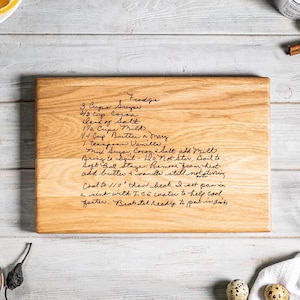 Fudge
3 Cups Sugar
2/3 Cup Cocoa
Dash of Salt
1 1/2 Cups Milk
1/4 Cup Butter or Marg
1 teaspoon Vanilla
Mix Sugar, Cocoa & Salt add Milk
Bring to Boil - Do Not Stir, Boil to
Soft Ball Stage. Remove from heat
add butter & vanilla still not stirring
Cool to 110° then beat I set pan in
a sink with Ice water to help cool
faster. Beat til ready to put in dish